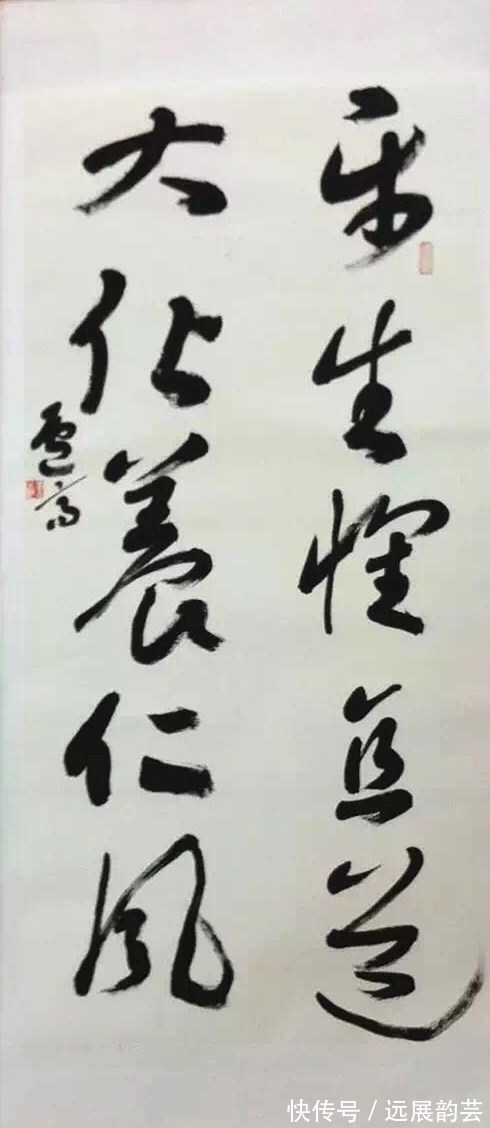 平生懷直道
大化養仁風
快传号 / 远展韵芸